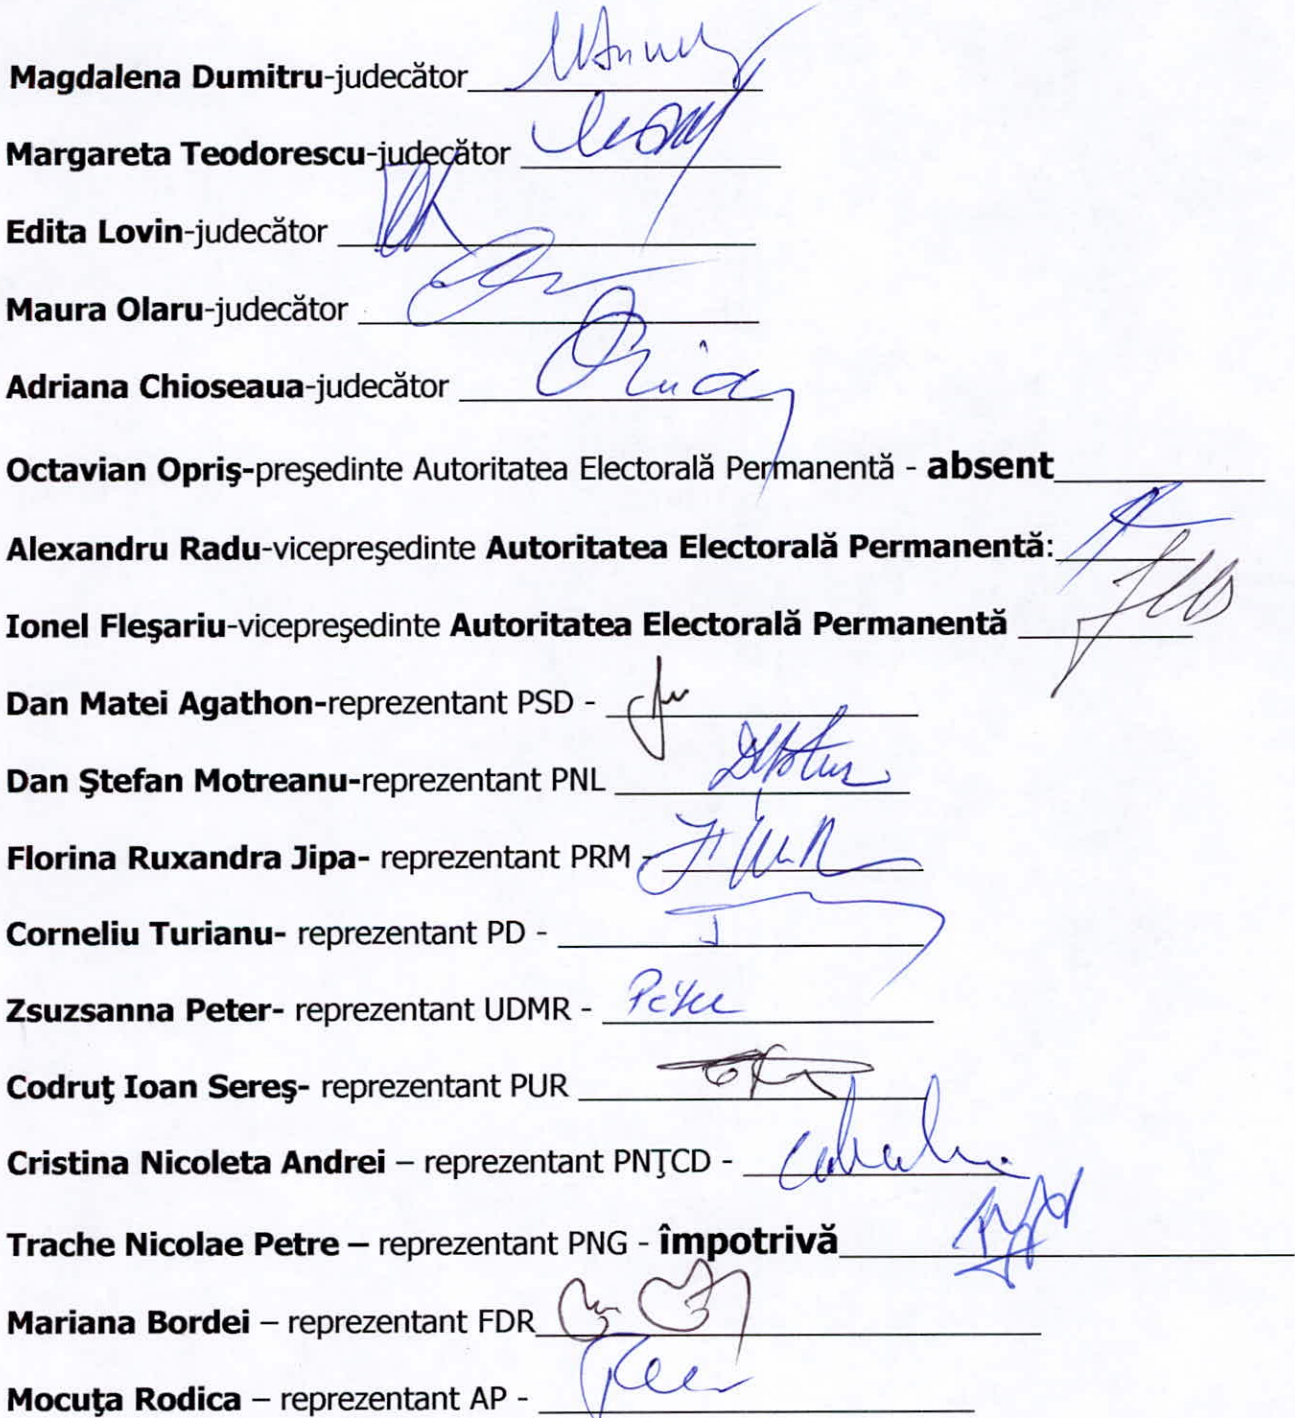 Magdalena Dumitru-judecător
Margareta Teodorescu-judecător
Edita Lovin-judecător
Maura Olaru-judecător
Adriana Chioseaua-judecător
Octavian Opriş-preşedinte Autoritatea Electorală Permanentă - absent
Alexandru Radu-vicepreşedinte Autoritatea Electorală Permanentă:
Ionel Fleşariu-vicepreşedinte Autoritatea Electorală Permanentă
Dan Matei Agathon-reprezentant PSD -
Dan Ştefan Motreanu-reprezentant PNL
Florina Ruxandra Jipa- reprezentant PRM -
Corneliu Turianu- reprezentant PD -
Zsuzsanna Peter- reprezentant UDMR - Peter
Codruţ Ioan Sereş- reprezentant PUR
Cristina Nicoleta Andrei – reprezentant PNŢCD -
Trache Nicolae Petre – reprezentant PNG - împotrivă
Mariana Bordei – reprezentant FDR
Mocuţa Rodica – reprezentant AP -